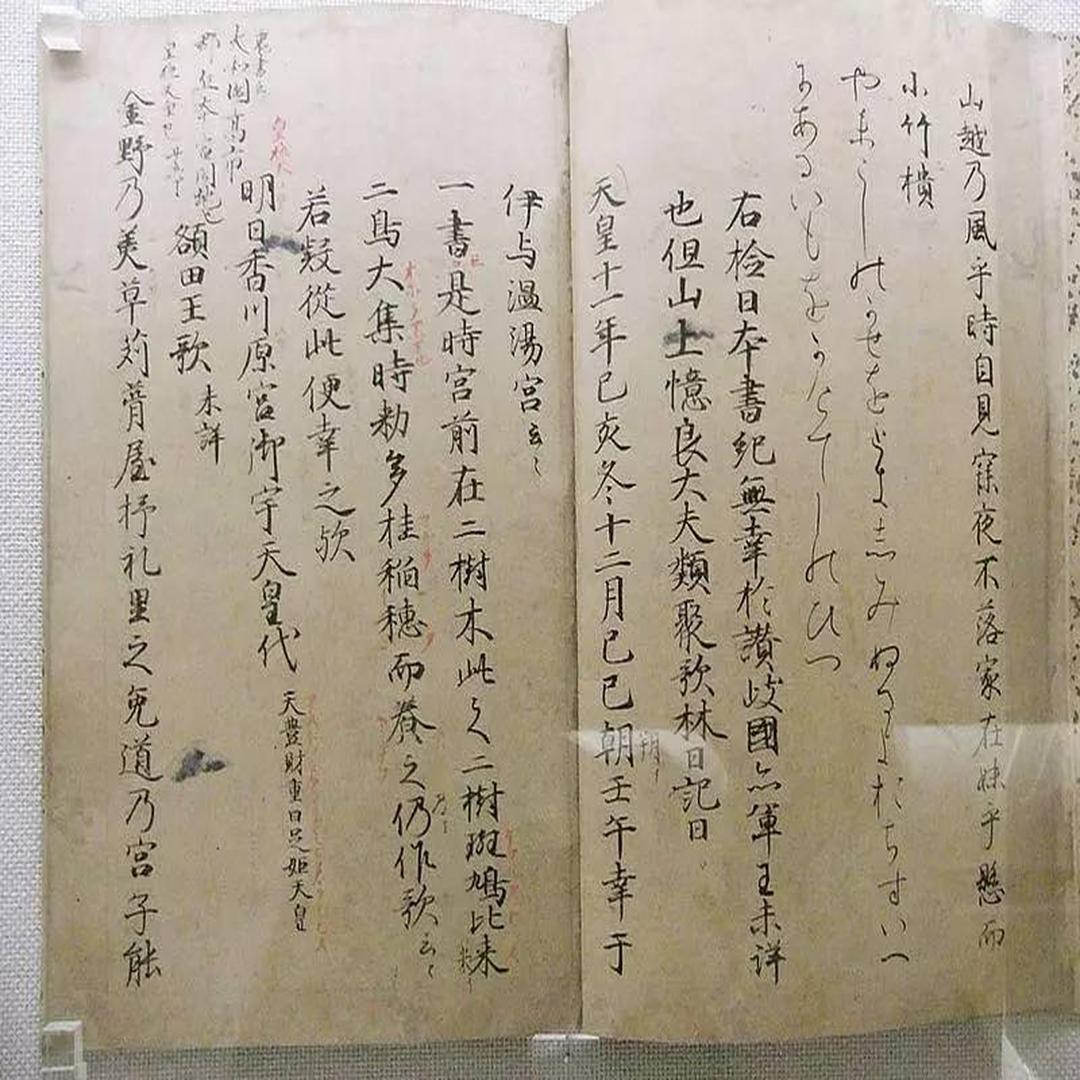 山越乃風乎時自見寐夜不落家在妹乎懸而
小竹樻
やまこしのかせをときしみぬるよおちすいへ
にあるいもをかけてしのひつ
右撿日本書紀無幸於讃岐國亦軍王未詳
也但山上憶良大夫類聚歌林曰記曰
天皇十一年己亥冬十二月己巳朔壬午幸于
朔
伊与温湯宮云々
一書是時宮前在二樹木此之二樹斑鳩比来
二鳥大集時勅多挂稲穂而養之仍作歌云々
若疑從此便幸之欤
明日香川原宮御宇天皇代 天豊財重日足姫天皇
額田王歌 未詳
金野乃美草苅葺屋杼礼里之兔道乃宮子能
大和國高市